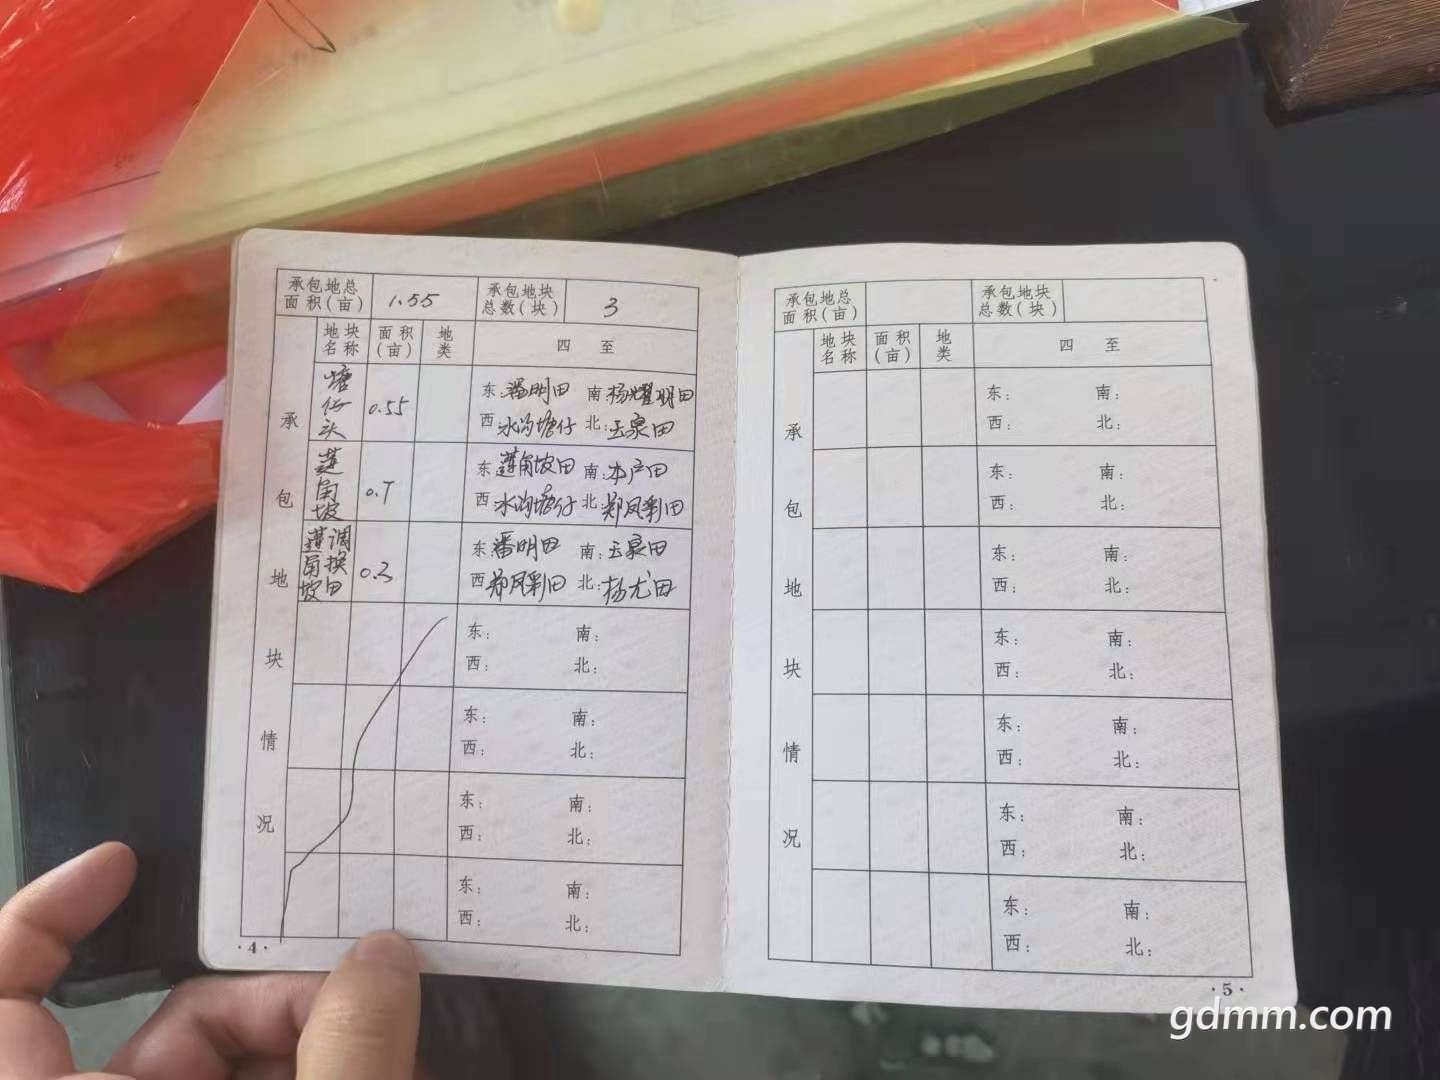 承包地总面积(亩) 1.55 承包地块总数(块) 3
承包地块情况
地块名称 面积(亩) 地类 四至
塘仔头 0.55 东:潘明田 南:杨耀明田
西:水沟塘仔 北:玉泉田
莲角坡 0.7 东:莲角坡田 南:本户田
西:水沟塘仔 北:郑凤彩田
莲角坡调换田 0.3 东:潘明田 南:玉泉田
西:郑凤彩田 北:杨尤田
东: 南:
西: 北:
东: 南:
西: 北:
东: 南:
西: 北:
东: 南:
西: 北:
·4·
承包地总面积(亩) 承包地块总数(块)
承包地块情况
地块名称 面积(亩) 地类 四至
东: 南:
西: 北:
东: 南:
西: 北:
东: 南:
西: 北:
东: 南:
西: 北:
东: 南:
西: 北:
东: 南:
西: 北:
东: 南:
西: 北:
·5·
gdmm.com